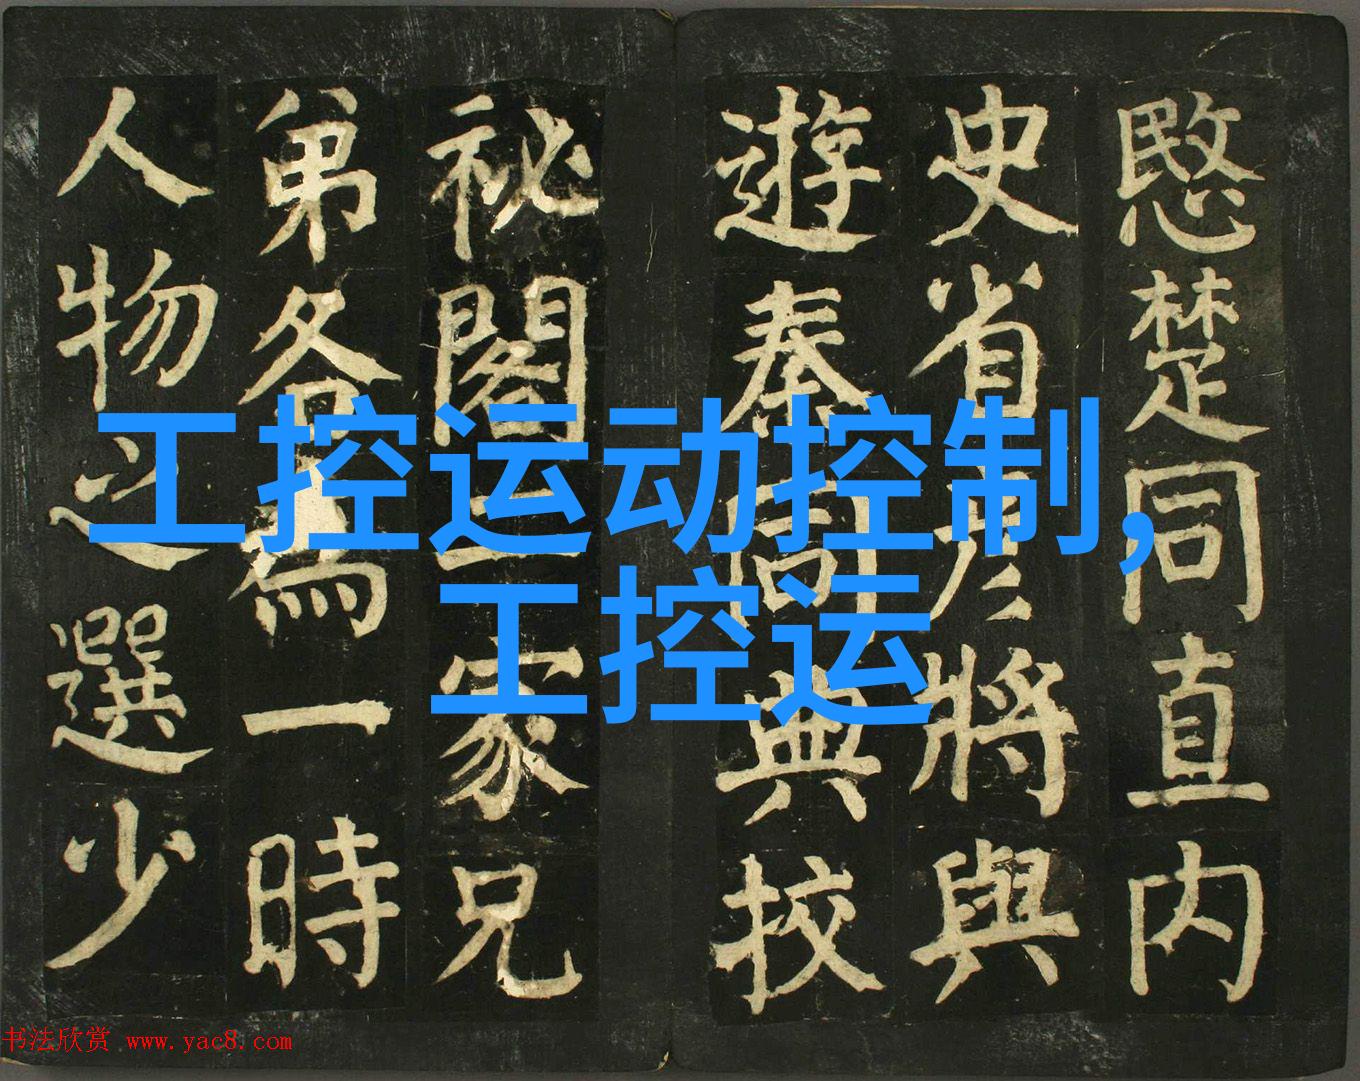 愍楚同直内
史省彦將與
遊秦同典校
祕閣二家兄
弟各為一時
人物之選少
工控运动控制,
工控运
书法欣赏 www.yac8.com